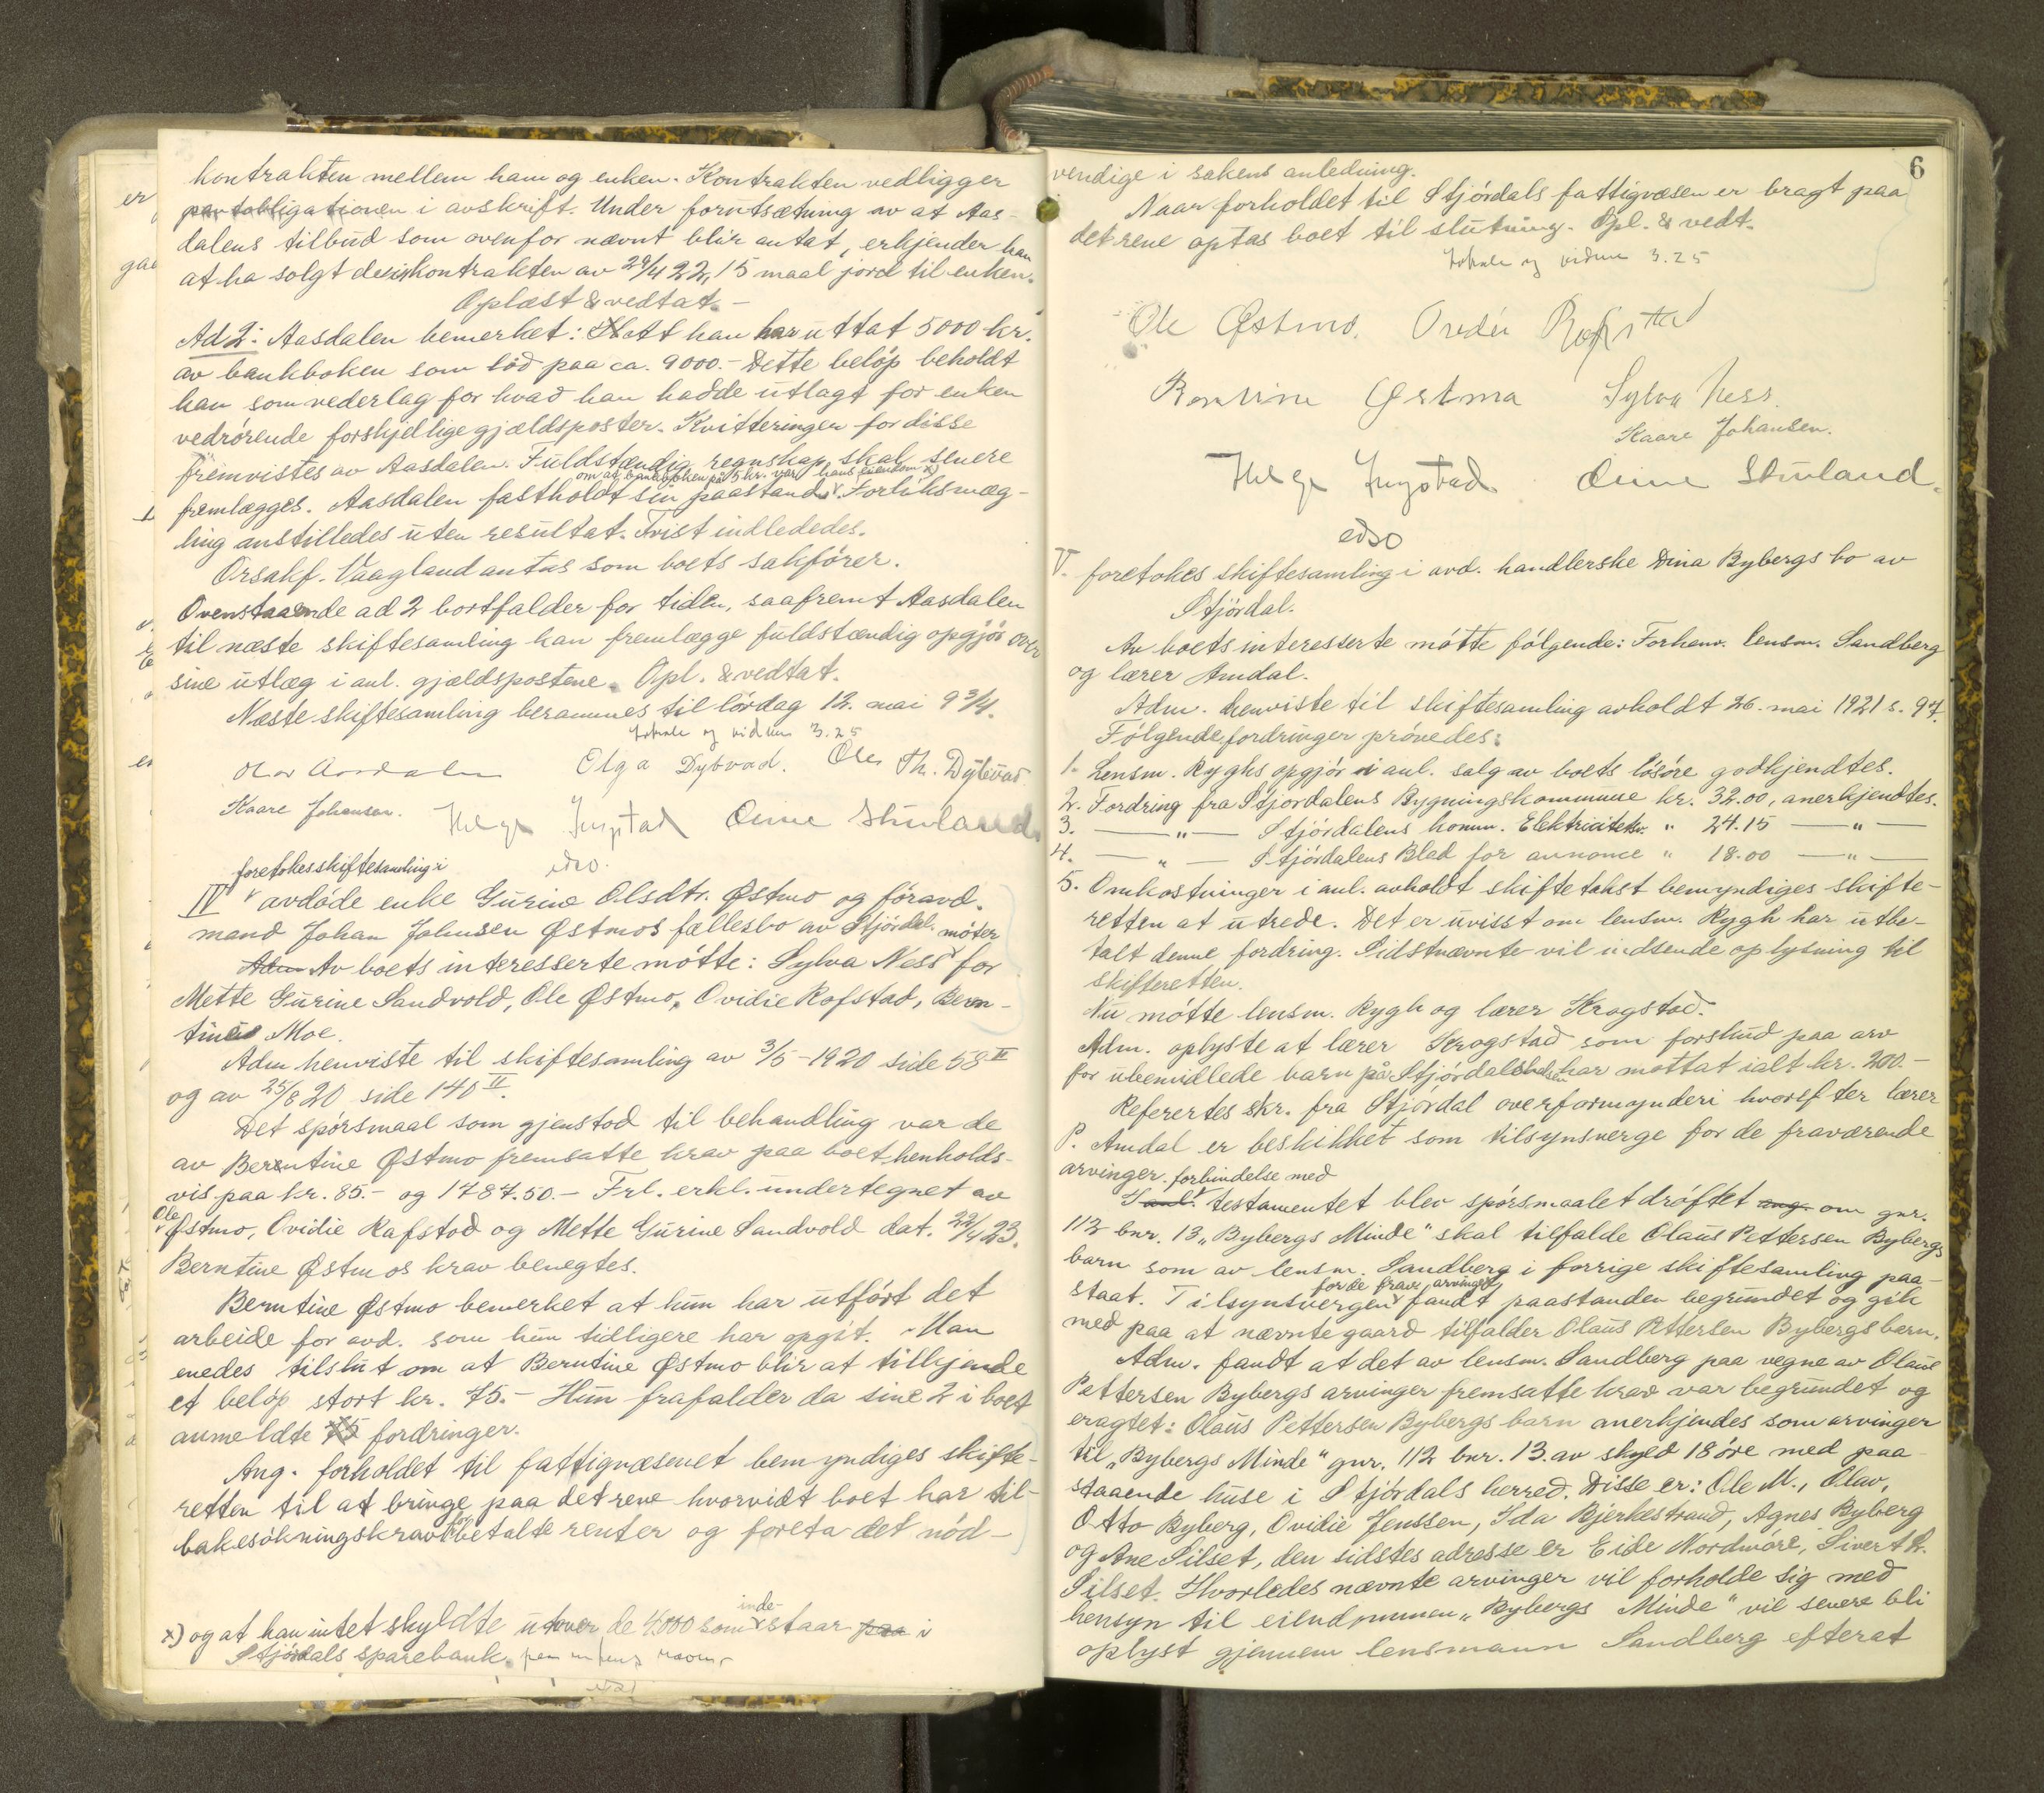 kontrakten mellem ham og enken. Kontrakten vedligger
pantobligationen i avskrift. Under forutsætning av at Aas-
dalens tilbud som ovenfor nævnt blir antat, erkjender han
at ha solgt desin kontrakten av 29/4 22, 15 maal jord til enken.
Oplæst & vedtat.-
Ad 2: Aasdalen bemerket: At han har uttat 5000 kr.
av bankboken som lød paa ca. 9000.- Dette beløp beholdt
han som vederlag for hvad han hadde utlagt for enken
vedrørende forskjellige gjældsposter. Kvitteringer for disse
fremvistes av Aasdalen. Fuldstændig regnskap skal senere
om at bankboken på 5 kr. var hans eiendom x)
fremlægges. Aasdalen fastholdt sin paastand v. Forliksmæg-
ling anstilledes uten resultat. Tvist indlededes.
Orsakf. Vaagland antas som boets sakfører.
Ovenstaaende ad 2 bortfalder for tiden, saafremt Aasdalen
til næste skiftesamling kan fremlægge fuldstændig opgjør over
sine utlæg i anl. gjældspostene. Opl. & vedtat.
Næste skiftesamling berammes til lørdag 12. mai 9 3/4.
Lokale og vidner 3.25
Olav Aasdalen Olga Dybvad. Ole Th. Dybvad
Kaare Johansen. Helge Ingstad Eline Stuvland
edso.
foretokes skiftesamling i
IV v avdøde enke Gurine Olsdtr. Østmo og førавd.
mand Johan Johnsen Østmos fællesbo av Stjørdal.
møter
Av boets interesserte møtte: Sylva Ness v for
Mette Gurine Sandvold, Ole Østmo, Ovidie Rofstad, Bern-
tine Moe.
Adm henviste til skiftesamling av 3/5-1920 side 58 II
og av 25/8 20 side 140 II.
Det spørsmaal som gjenstod til behandling var de
av Berntine Østmo fremsatte krav paa boet, henholds-
vis paa kr. 85.- og 1787.50.- Frl. erkl. undertegnet av
Ole
v Østmo, Ovidie Rafstad og Mette Gurine Sandvold dat. 22/4 23.
Berntine Østmos krav benegtes.
Berntine Østmo bemerket at hun har utført det
arbeide for avd. som hun tidligere har opgit. Man
enedes tilslut om at Berntine Østmo blir at tilkjende
et beløp stort kr. 75.- Hun frafalder da sine 2 i boet
anmeldte 75 fordringer.
Ang. forholdet til fattigvæsenet bemyndiges skifte-
retten til at bringe paa det rene hvorvidt boet har til-
bakesøkningskrav for betalte renter og foreta det nød-
x) og at han intet skyldte utover de 4000 som inde-staar paa i
Stjørdals sparebank.
6
vendige i sakens anledning.
Naar forholdet til Stjørdals fattigvæsen er bragt paa
det rene optas boet til slutning. Opl. & vedt.
Lokale og vidner 3.25
Ole Østmo. Ovidie Rofstad
Berntine Østmo Sylva Ness.
Kaare Johansen.
Helge Ingstad Eline Stuvland.
edso
V. foretokes skiftesamling i avd. handlerske Dina Bybergs bo av
Stjørdal.
Av boets interesserte møtte følgende: Forhenv. lensm. Sandberg
og lærer Amdal.
Adm. henviste til skiftesamling avholdt 26. mai 1921 s. 97.
Følgende fordringer prøvedes:
1. Lensm. Ryghs opgjør i anl. salg av boets løsøre godkjendtes.
2. Fordring fra Stjørdalens Bygningskommune kr. 32.00, anerkjendtes.
3. — " — Stjørdalens komm. Elektricitetsv. " 24.15 — " —
4. — " — Stjørdalens Blad for annonce " 18.00 — " —
5. Omkostninger i anl. avholdt skiftetakst bemyndiges skifte-
retten at utrede. Det er uvisst om lensm. Rygh har utbe-
talt denne fordring. Sidstnævnte vil indsende oplysning til
skifteretten.
Nu møtte lensm. Rygh og lærer Krogstad.
Adm. oplyste at lærer Krogstad som forskud paa arv
for ubemidlede barn på Stjørdalshalsen har mottat ialt kr. 200.-
Referertes skr. fra Stjørdal overformynderi hvorefter lærer
P. Amdal er beskikket som tilsynsverge for de fraværende
arvinger.
forbindelse med
I anl. v testamentet blev spørsmaalet drøftet ang. om gnr.
112 bnr. 13 „Bybergs Minde" skal tilfalde Olaus Pettersen Bybergs
barn som av lensm. Sandberg i forrige skiftesamling paa-
for de fravr. arvinger
staat. Tilsynsvergen v fandt paastanden begrundet og gik
med paa at nævnte gaard tilfalder Olaus Pettersen Bybergs barn.
Adm. fandt at det av lensm. Sandberg paa vegne av Olaus
Pettersen Bybergs arvinger fremsatte krav var begrundet og
eragtet: Olaus Pettersen Bybergs barn anerkjendes som arvinger
til „Bybergs Minde" gnr. 112 bnr. 13 av skyld 18 øre med paa-
staaende huse i Stjørdals herred. Disse er: Ole M., Olav,
Otto Byberg, Ovidie Jenssen, Ida Bjerkestrand, Agnes Byberg
og Ane Silset, den sidstes adresse er Eide Nordmøre, Sivert R.
Silset. Hvorledes nævnte arvinger vil forholde sig med
hensyn til eiendommen „Bybergs Minde" vil senere bli
oplyst gjennem lensmann Sandberg efterat